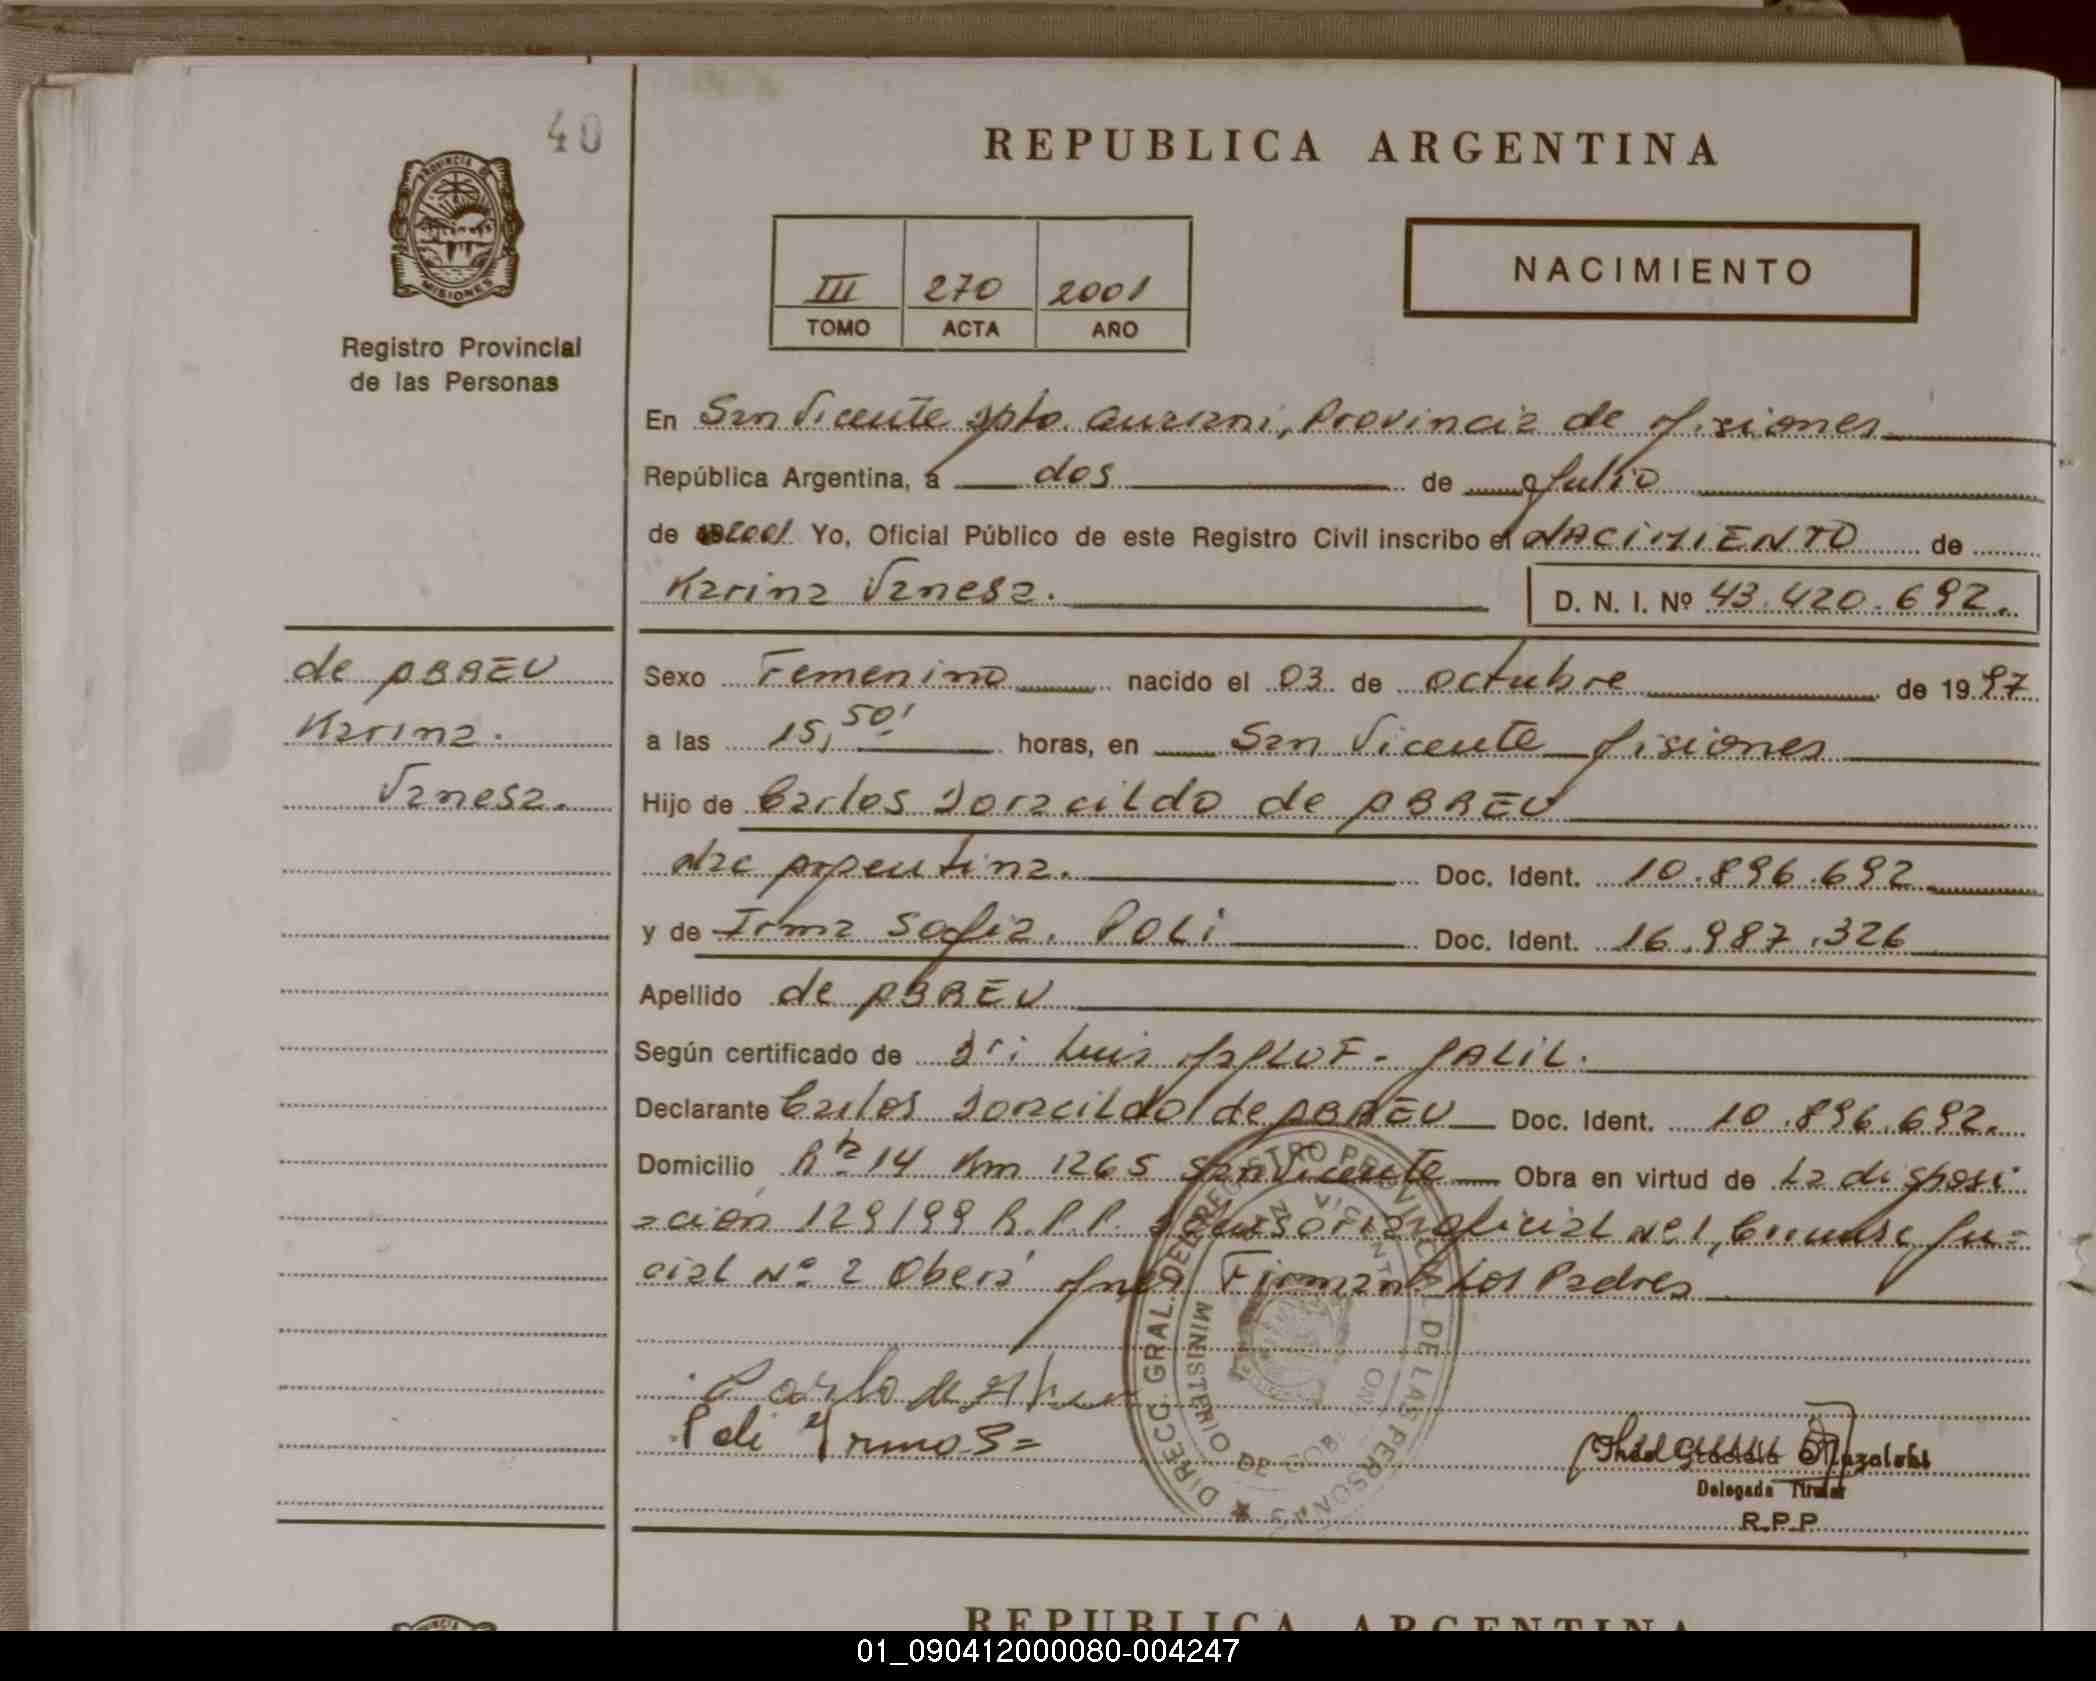 40
PROVINCIA DE
MISIONES
Registro Provincial
de las Personas
REPUBLICA ARGENTINA
III 270 2001
TOMO ACTA AÑO
NACIMIENTO
En San Vicente Dpto. Guarani, Provincia de Misiones
República Argentina, a dos de Julio
de 2001 Yo, Oficial Público de este Registro Civil inscribo el NACIMIENTO de
Karina Vanesa. D. N. I. Nº 43.420.692.
de ABREU
Karina.
Vanesa.
Sexo Femenino nacido el 03 de octubre de 1997
a las 15,50' horas, en San Vicente Misiones
Hijo de Carlos Doracildo de ABREU
Nac Argentina. Doc. Ident. 10.896.692
y de Irma Sofia. POLI Doc. Ident. 16.987.326
Apellido de ABREU
Según certificado de Dr: Luis GALIL.
Declarante Carlos Doracildo de ABREU Doc. Ident. 10.896.692.
Domicilio Rta 14 Km 1265 San Vicente Obra en virtud de La disposi
=ción 129/99 R.P.P. oficial Nº1, Ju=
cial Nº 2 Oberá Mnes Firman Los Padres
Poli Irma S=
DIRECC. GRAL. DEL REGISTRO PROVINCIAL DE LAS PERSONAS
MINISTERIO DE GOB.
SAN VICENTE
Delegada Titular
R.P.P.
REPUBLICA ARGENTINA
01_090412000080-004247